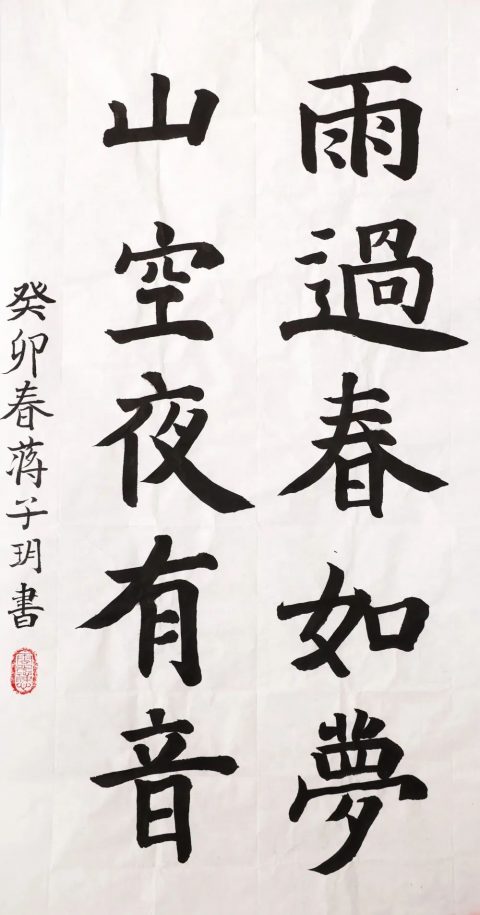 雨過春如夢
山空夜有音
癸卯春蒋子玥書